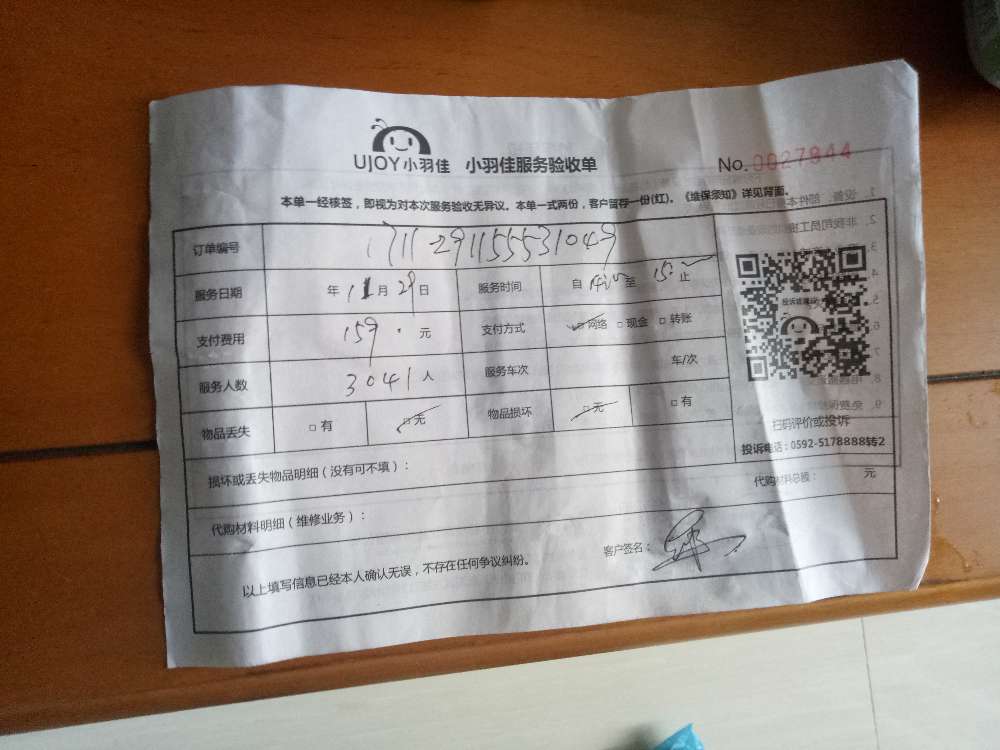 UJOY小羽佳 小羽佳服务验收单 No.0027844
本单一经核签，即视为对本次服务验收无异议。本单一式两份，客户留存一份(红)。《维保须知》详见背面。
订单编号 1711291155531049
服务日期 年11月29日 服务时间 自 至 止
支付费用 159.元 支付方式 □网络 □现金 □转账
服务人数 3041人 服务车次 车/次
物品丢失 □有 □无 物品损坏 □无 □有
扫码评价或投诉
投诉电话：0592-5178888转2
损坏或丢失物品明细（没有可不填）：
代购材料明细（维修业务）： 代购材料总额： 元
以上填写信息已经本人确认无误，不存在任何争议纠纷。 客户签名：